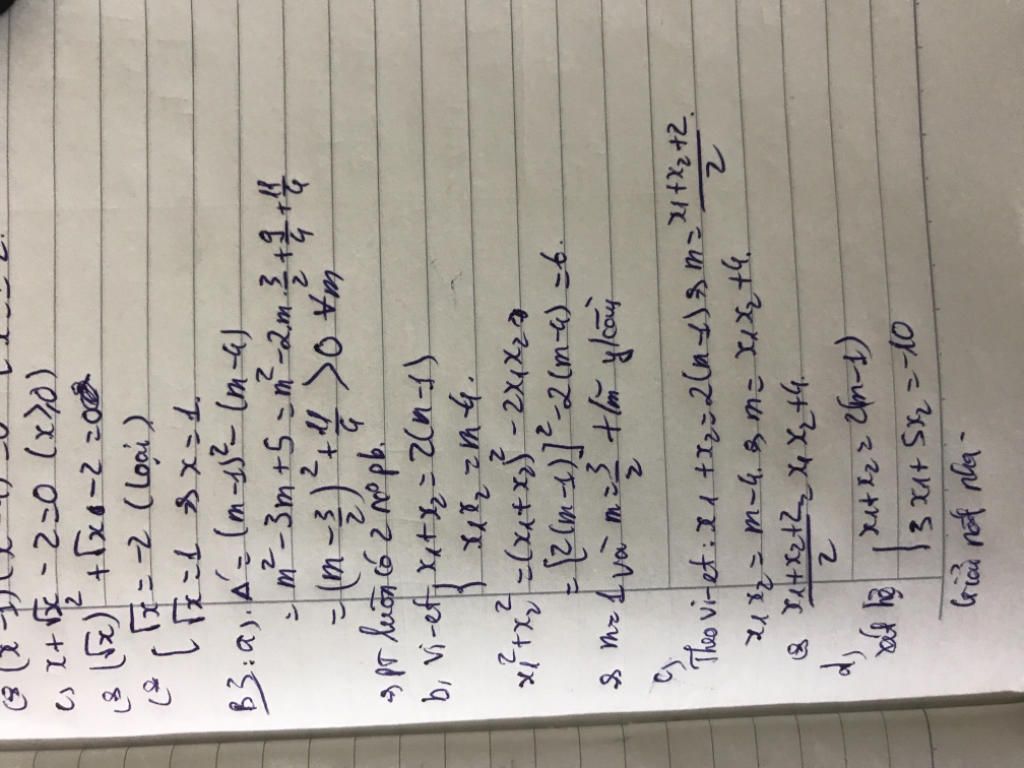 c, x + √x - 2 = 0 (x ≥ 0)
(√x)² + √x - 2 = 0
√x = -2 (loại)
√x = 1 ⇒ x = 1.
B3: a), Δ' = (m-1)² - (m-4)
= m² - 3m + 5 = m² - 2m 3/2 + 9/4 + 11/4
= (m - 3/2)² + 11/4 > 0 ∀m
⇒ PT luôn có 2 no pb.
b, Vi-et { x₁ + x₂ = 2(m-1)
x₁x₂ = m-4.
x₁² + x₂² = (x₁+x₂)² - 2x₁x₂
= [2(m-1)]² - 2(m-4) = 6.
⇒ m = 1 và m = 3/2 t/m y/cầu
c,
Theo vi-et: x₁ + x₂ = 2(m-1) ⇒ m = (x₁+x₂+2)/2
x₁x₂ = m-4 ⇒ m = x₁x₂ + 4.
⇒ (x₁+x₂+2)/2 = x₁x₂ + 4.
d,
xét hệ { x₁ + x₂ = 2(m-1)
3x₁ + 5x₂ = -10
Giải nốt nha -